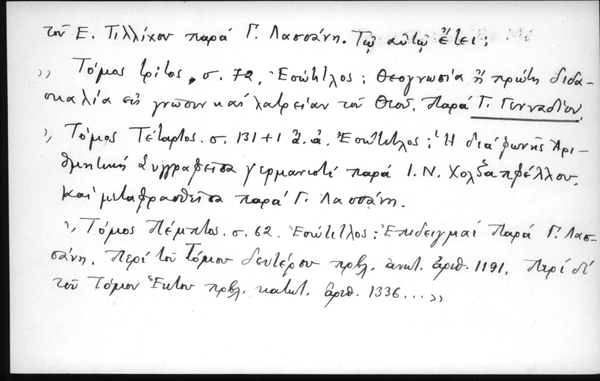 τοῦ Ε. Τιλλίχου παρά Γ. Λασσάνη. Τῷ αὐτῷ ἔτει;
,, Τόμος τρίτος, σ. 72, Ἐσώτιτλος: Θεογνωσία ἤ πρώτη διδα-
σκαλία εἰς γνῶσιν καί λατρείαν τοῦ Θεοῦ. Παρά Γ. Γενναδίου.
,, Τόμος Τέταρτος. σ. 131+1 ἀ.ἀ. Ἐσώτιτλος: Ἡ διά φωνῆς Ἀρι-
θμητική Συγγραφεῖσα γερμανιστί παρά Ι. Ν. Χολζαπφέλλου.
καί μεταφρασθεῖσα παρά Γ. Λασσάνη.
,, Τόμος Πέμπτος. σ. 62. Ἐσώτιτλος: Γ. Λασ-
σάνη. Περί τοῦ Τόμου δευτέρου πρβλ. ἀνωτ. ἀριθ. 1191. Περί δέ
τοῦ Τόμου Ἕκτου πρβλ. κατωτ. ἀριθ. 1336...,,